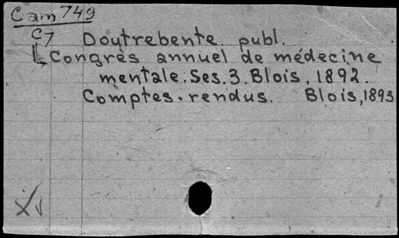 Cam 749
C7 Doutrebente, publ.
Congrès annuel de médecine
mentale. Ses. 3. Blois, 1892.
Comptes-rendus. Blois, 1893